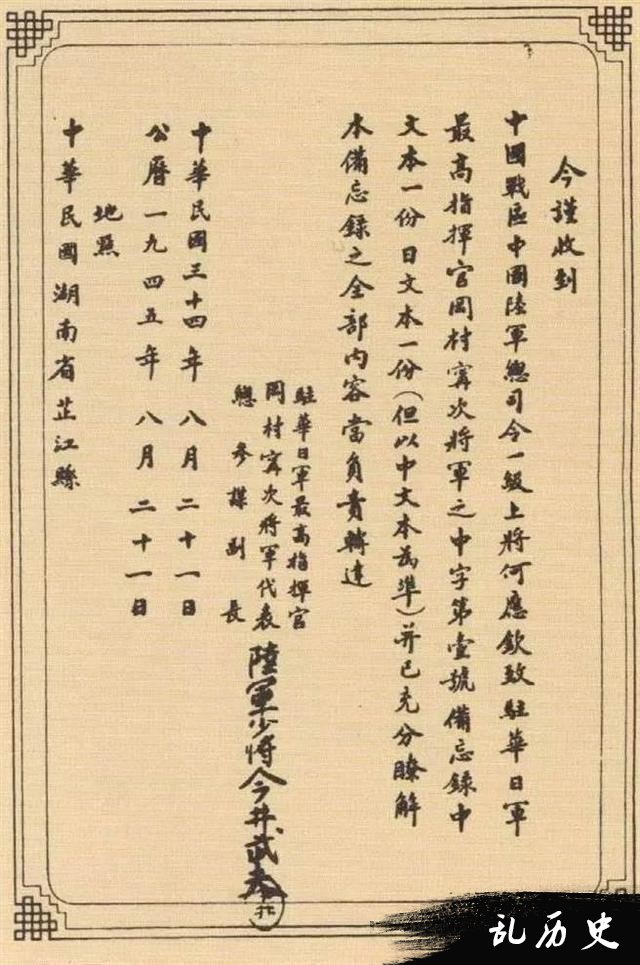 今謹收到
中國戰區中國陸軍總司令一級上將何應欽致駐華日軍
最高指揮官岡村寧次將軍之中字第壹號備忘錄中
文本一份日文本一份(但以中文本為準)并已充分瞭解
本備忘錄之全部內容當負責轉達
駐華日軍最高指揮官
岡村寧次將軍代表
總參謀副長
陸軍少將今井武夫
中華民國三十四年八月二十一日
公曆一九四五年八月二十一日
地點
中華民國湖南省芷江縣
乱历史